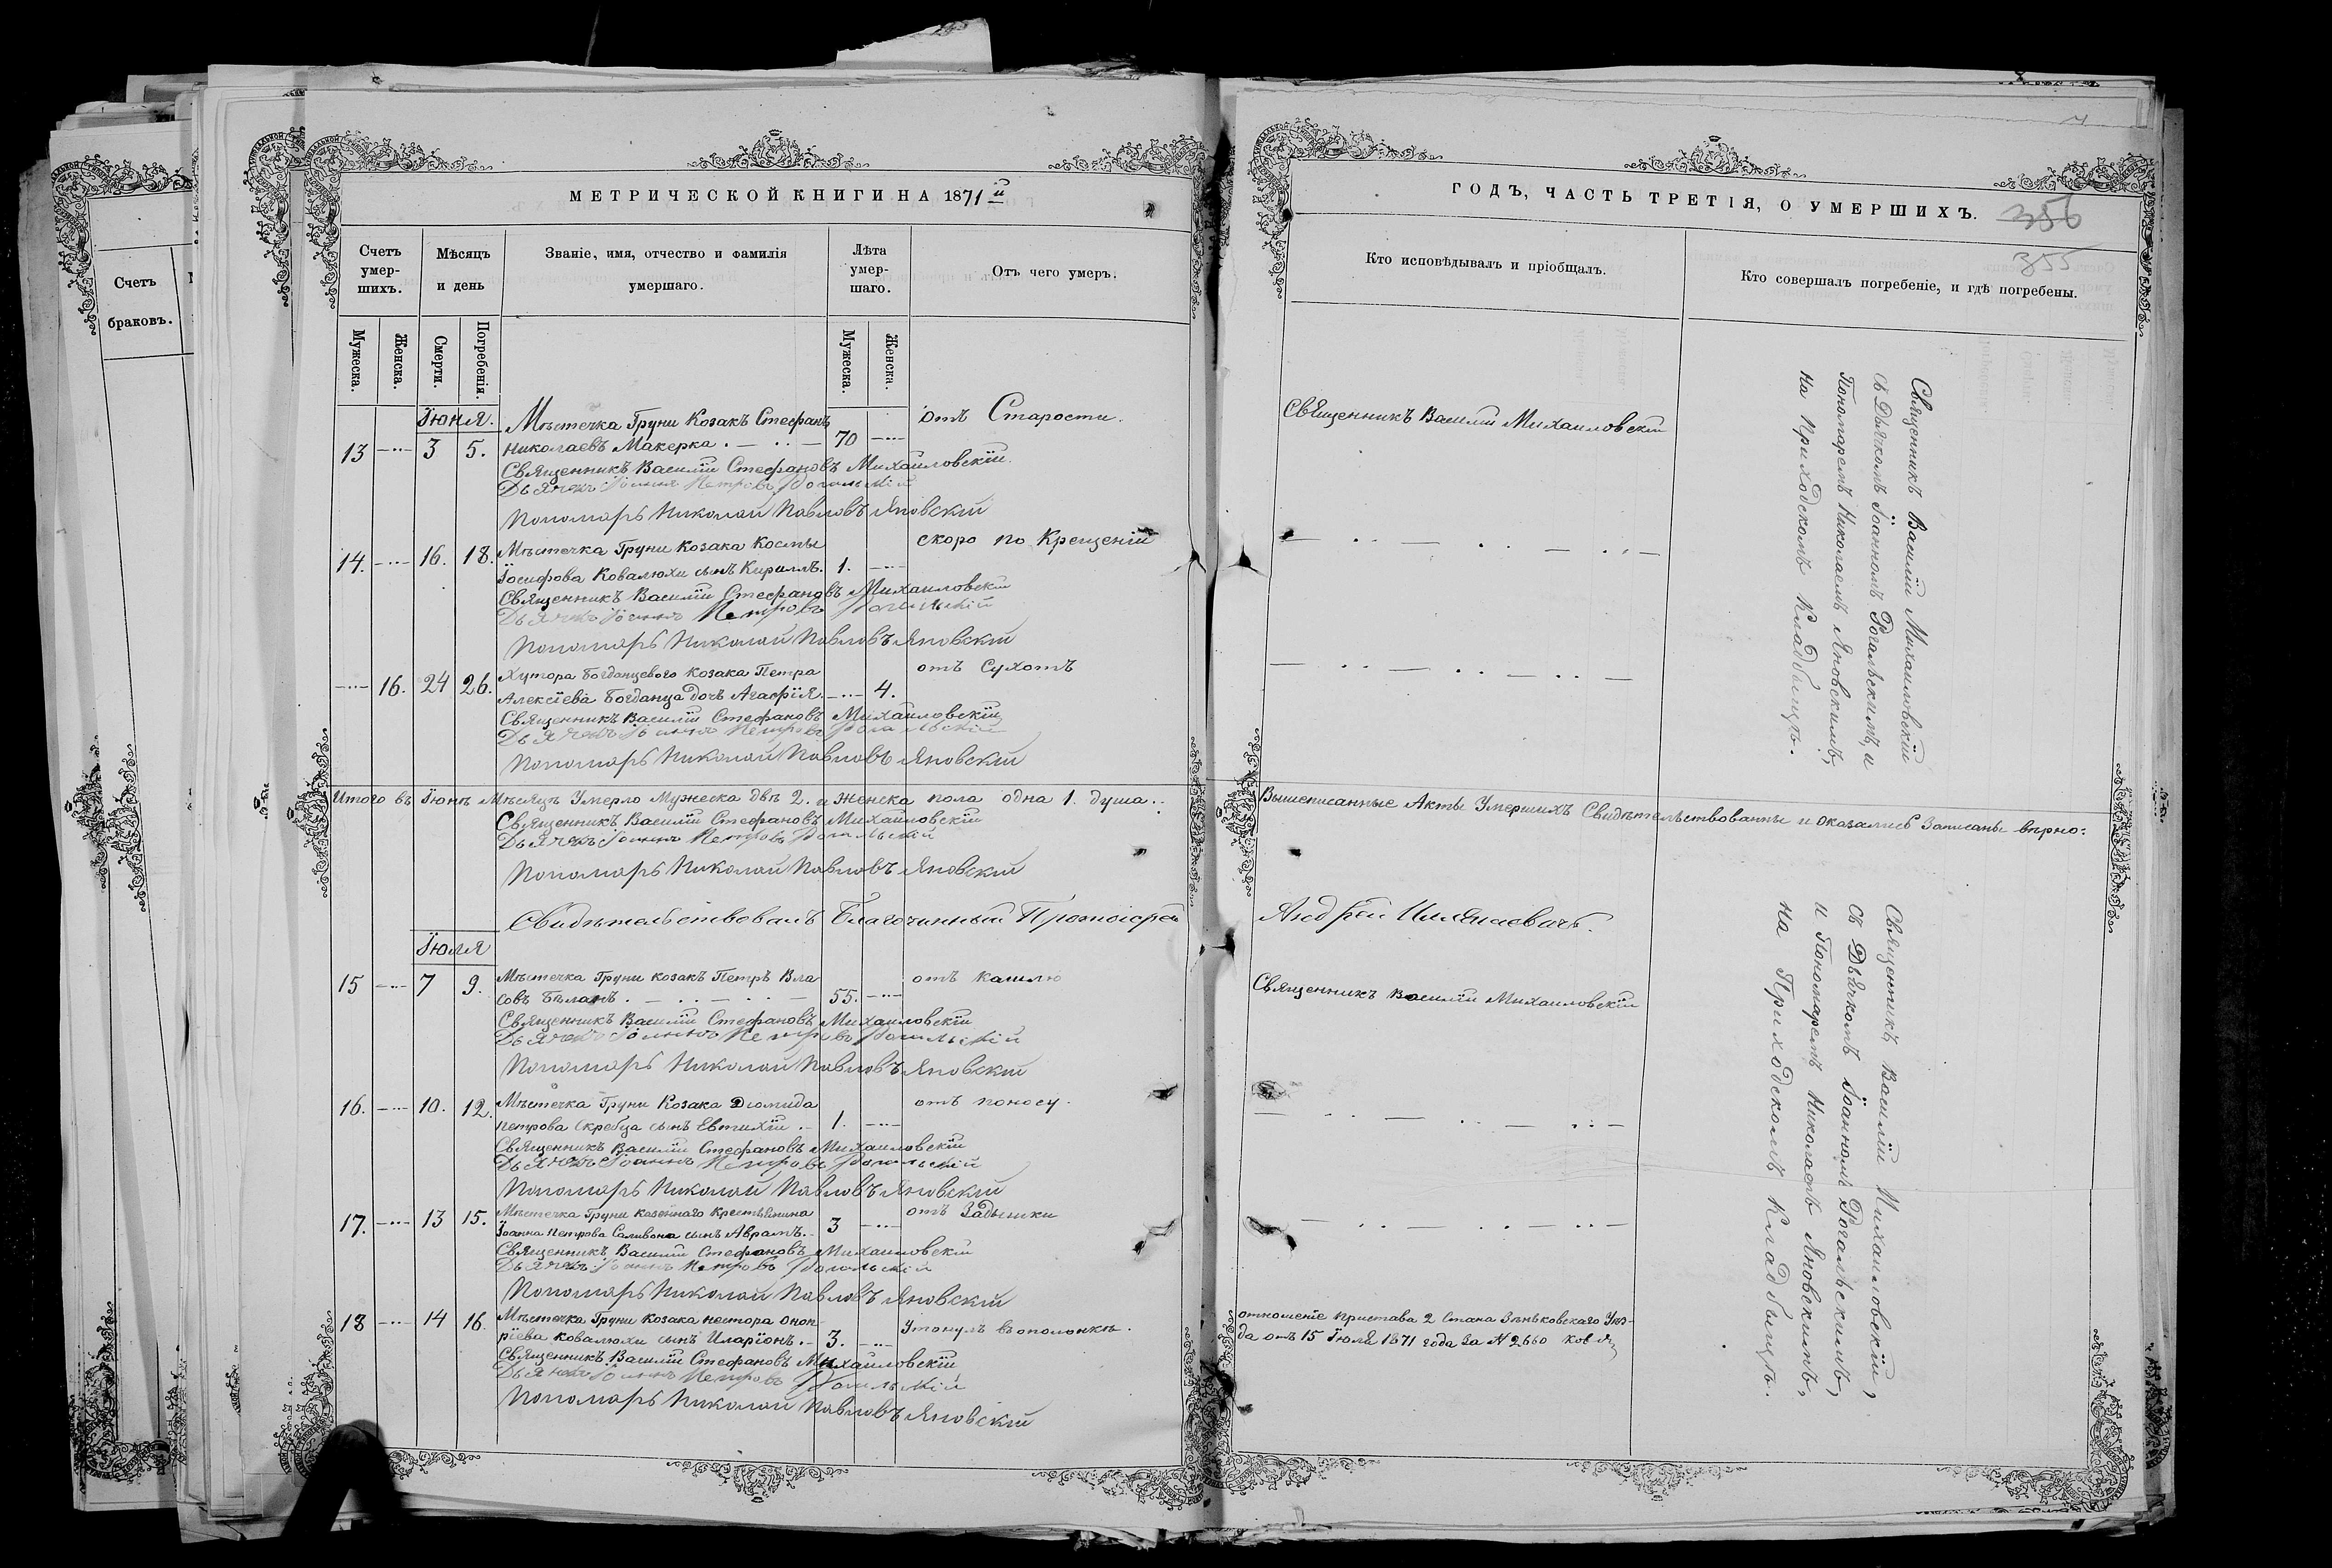 МЕТРИЧЕСКОЙ КНИГИ НА 1871й
Счетъ умер-шихъ.
Мѣсяцъ и день
Званіе, имя, отчество и фамилія умершаго.
Лѣта умер-шаго.
Отъ чего умеръ.
Мужеска.
Женска.
Смерти.
Погребенія.
Мужеска.
Женска.
Іюня.
13 3 5. Мѣстечка Груни Козакъ Стефанъ
Николаевъ Макерка. 70 отъ Старости.
Священникъ Василій Стефановъ Михаиловскій.
Дьячекъ Іоаннъ Петровъ Рогальскій
Пономарь Николай Павловъ Яновскій
14. 16. 18. Мѣстечка Груни Козака Космы
Іосифова Ковалюхи сынъ Кириллъ. 1. скоро по Крещеніи
Священникъ Василій Стефановъ Михаиловскій
Дьячекъ Іоаннъ Петровъ Рогальскій
Пономарь Николай Павловъ Яновскій
16. 24 26. Хутора Богданцевого Козака Петра
Алексіева Богданца дочь Агафія. 4. отъ Сухотъ
Священникъ Василій Стефановъ Михаиловскій
Дьячекъ Іоаннъ Петровъ Рогальскій
Пономарь Николай Павловъ Яновскій
Итого въ Іюнѣ Мѣсяцѣ Умерло Мужеска двѣ 2. и Женска пола одна 1. душа..
Священникъ Василій Стефановъ Михаиловскій
Дьячекъ Іоаннъ Петровъ Рогальскій
Пономарь Николай Павловъ Яновскій
Свидѣтельствовалъ Благочинный Протоіерей
Іюля
15 7 9. Мѣстечка Груни козакъ Петръ Вла
совъ Бѣланъ. 55. отъ кашлю
Священникъ Василій Стефановъ Михаиловскій
Дьячекъ Іоаннъ Петровъ Рогальскій
Пономарь Николай Павловъ Яновскій
16. 10. 12. Мѣстечка Груни Козака Діомида
Петрова Скребца сынъ Евтихій. 1. отъ поносу.
Священникъ Василій Стефановъ Михаиловскій
Дьячекъ Іоаннъ Петровъ Рогальскій
Пономарь Николай Павловъ Яновскій
17. 13 15. Мѣстечка Груни казеннаго крестьянина
Іоанна Петрова Саливона сынъ Аврамъ. 3 отъ Задышки
Священникъ Василій Стефановъ Михаиловскій
Дьячекъ Іоаннъ Петровъ Рогальскій
Пономарь Николай Павловъ Яновскій
18 14 16. Мѣстечка Груни козака Нестора Оноп
ріева Ковалюхи сынъ Иларіонъ. 3. Утонулъ въ ополонкѣ.
Священникъ Василій Стефановъ Михаиловскій
Дьячекъ Іоаннъ Петровъ Рогальскій
Пономарь Николай Павловъ Яновскій
ГОДЪ, ЧАСТЬ ТРЕТІЯ, О УМЕРШИХЪ.
356
355
Кто исповѣдывалъ и пріобщалъ.
Кто совершалъ погребеніе, и гдѣ погребены.
Священникъ Василій Михаиловскій
Священникъ Василій Михаиловскій
съ Дьячкомъ Іоанномъ Рогальскимъ, и
Пономаремъ Николаемъ Яновскимъ,
на Приходскомъ Кладбищѣ.
Вышеписанные Акты Умершихъ Свидѣтельствованы и оказались Записаны вѣрно:
Андрей
Священникъ Василій Михаиловскій
Священникъ Василій Михаиловскій,
съ Дьячкомъ Іоанномъ Рогальскимъ,
и Пономаремъ Николаемъ Яновскимъ,
на Приходскомъ Кладбищѣ.
отношеніе Пристава 2 Стана Зѣньковского Уѣз-
да отъ 15 Іюля 1871 года за № 2660
Счетъ
браковъ.